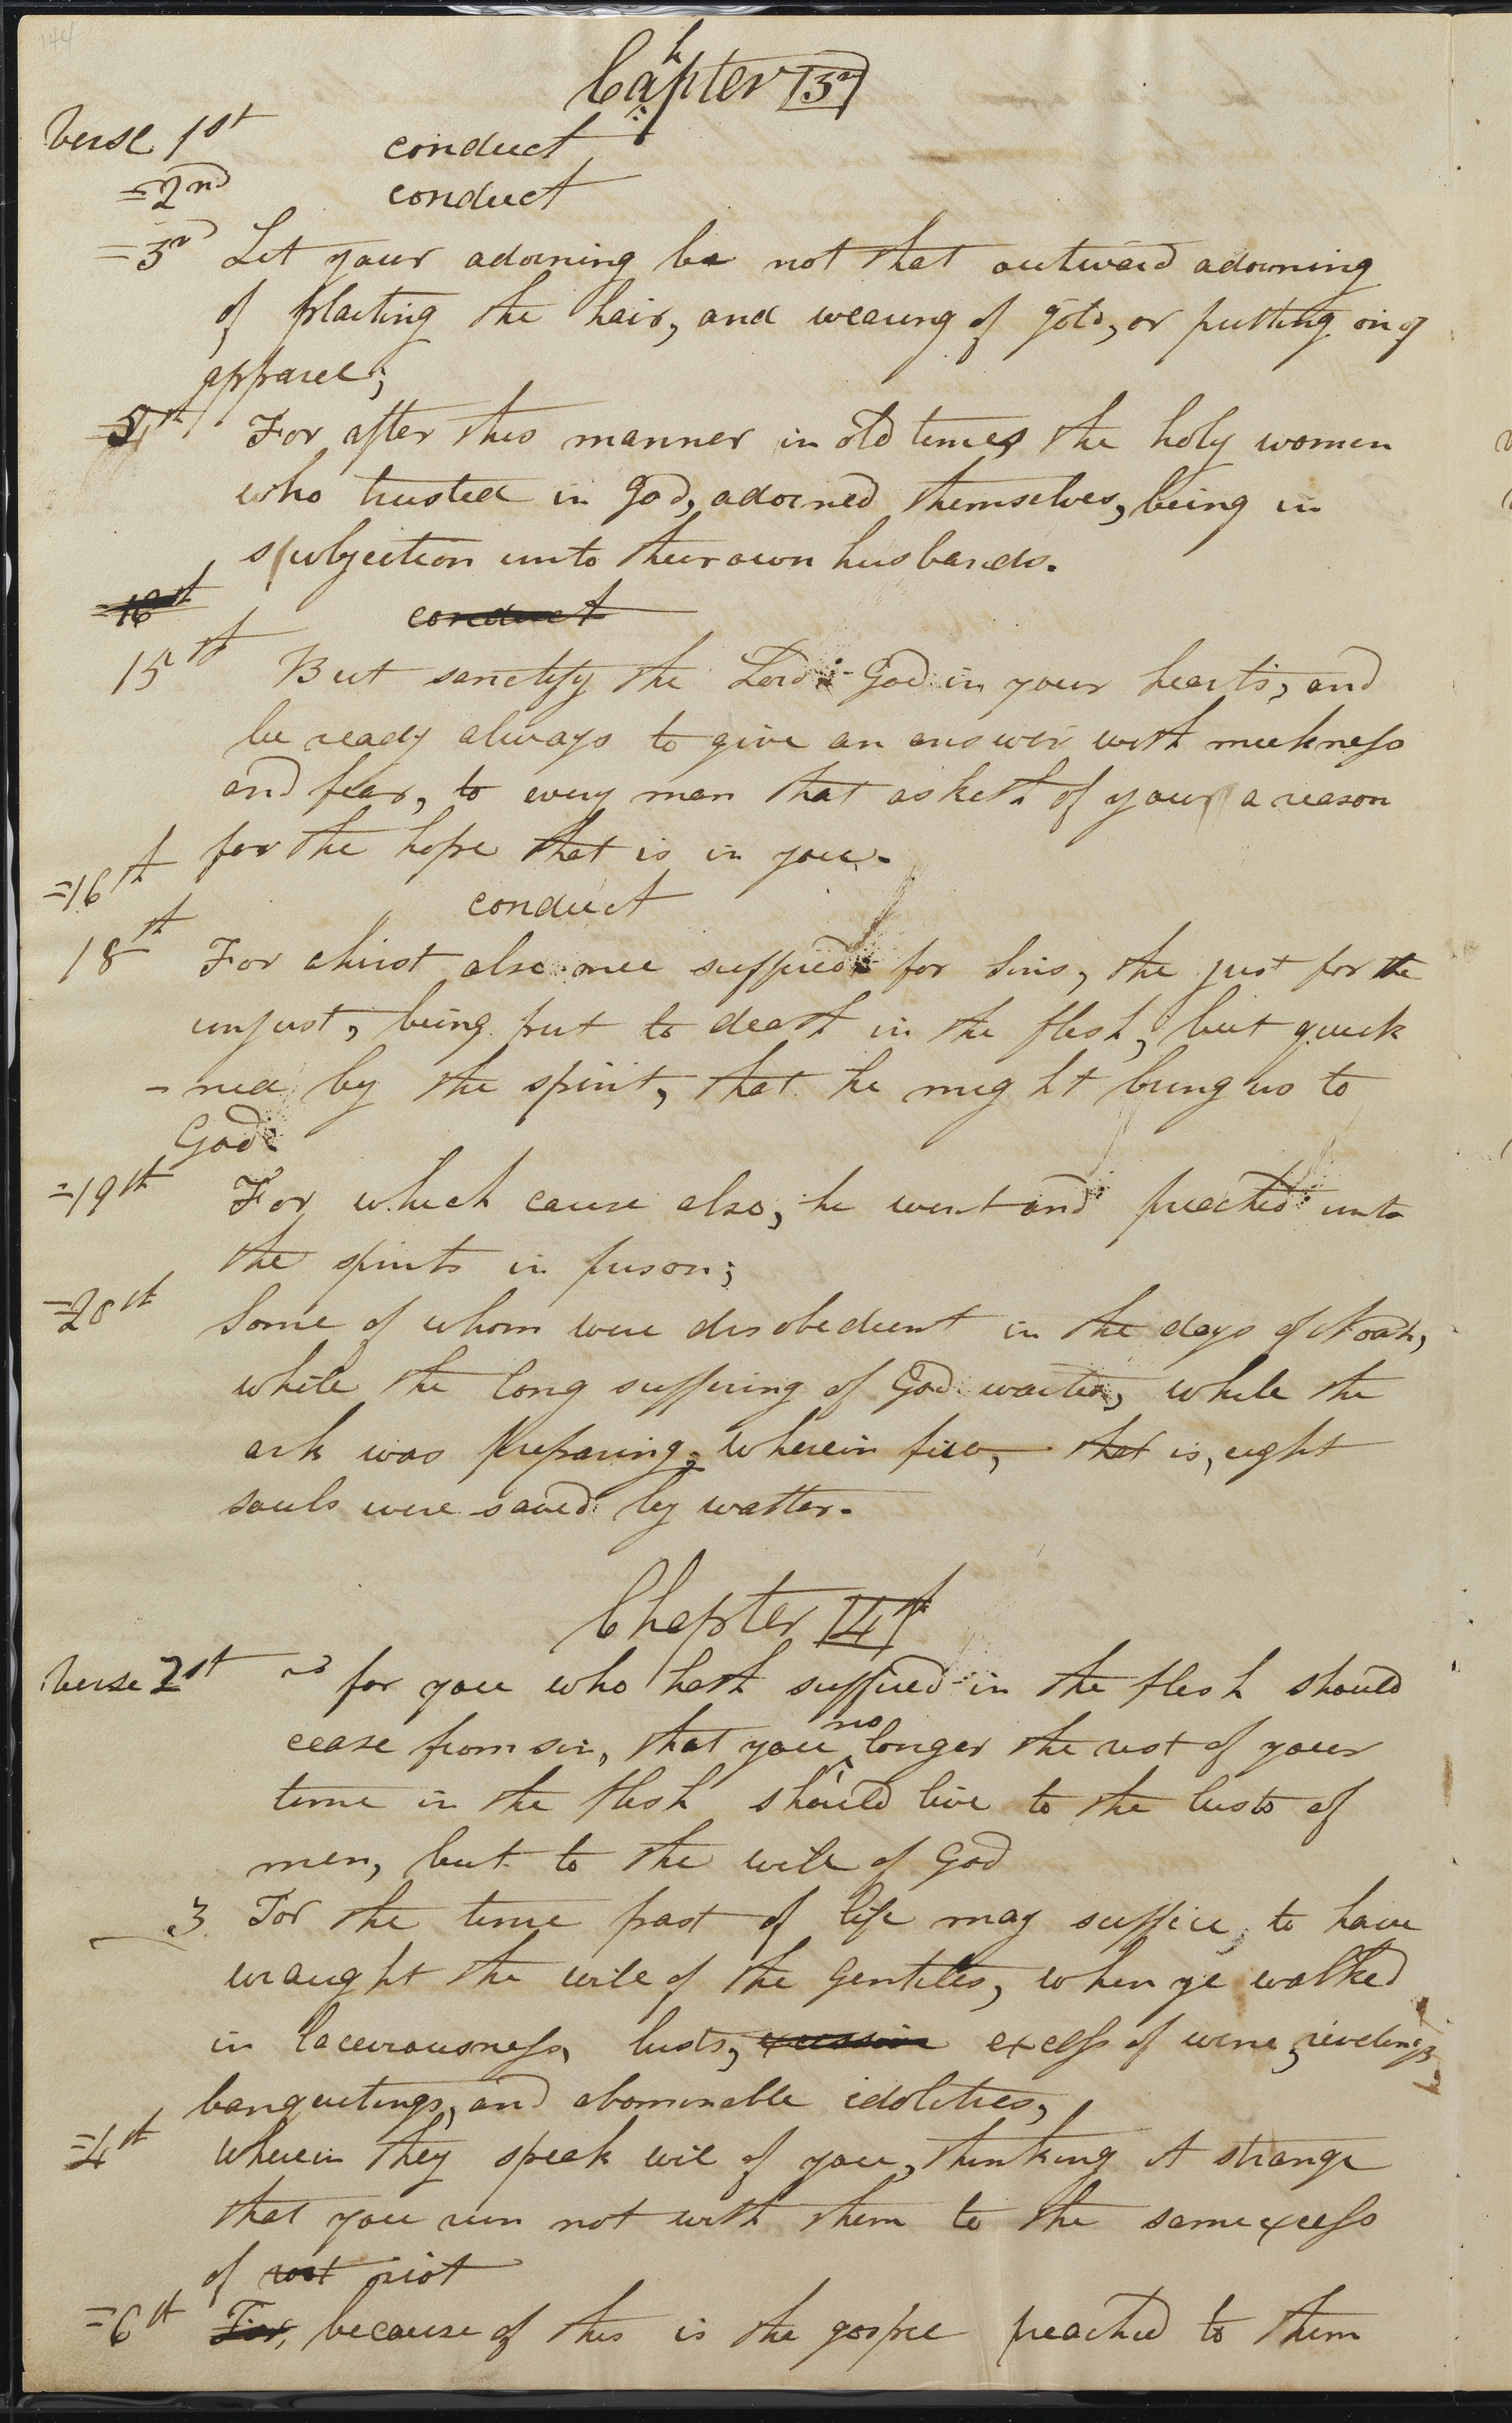 144
Chapter 3rd
Verse 1st conduct
=2nd conduct
=3rd Let your adorning be not that outward adorning
of plaiting the hair, and wearing of gold, or putting on of
apparel;
=5th For after this manner in old times the holy women
who trusted in God, adorned themselves, being in
subjection unto their own husbands.
=16th conduct
15th But sanctify the Lord God in your hearts, and
be ready always to give an answer with meekness
and fear, to every man that asketh of you a reason
for the hope that is in you.
=16th conduct
18th For christ also once suffered for sins, the just for the
unjust, being put to death in the flesh, but quick
-ned by the spirit, that he might bring us to
God.
=19th For which cause also, he went and preached unto
the spirits in prison;
=20th Some of whom were disobedient in the days of Noah,
while the long suffering of God waited, while the
ark was preparing; wherein few, that is, eight
souls were saved by watter.
Chapter 4th
Verse 2st for you who hath suffered in the flesh should
cease from sin, that you no longer the rest of your
time in the flesh should live to the lusts of
men, but to the will of God
3 For the time past of life may suffice, to have
wraught the will of the Gentiles, when ye walked
in laceviousness, lusts, excessive excess of wine, revelings,
banquetings, and abominable idolitries,
=4th wherein they speak evil of you, thinking it strange
that you run not with them to the same excess
of riot riot
=6th For, because of this is the gospel preached to them